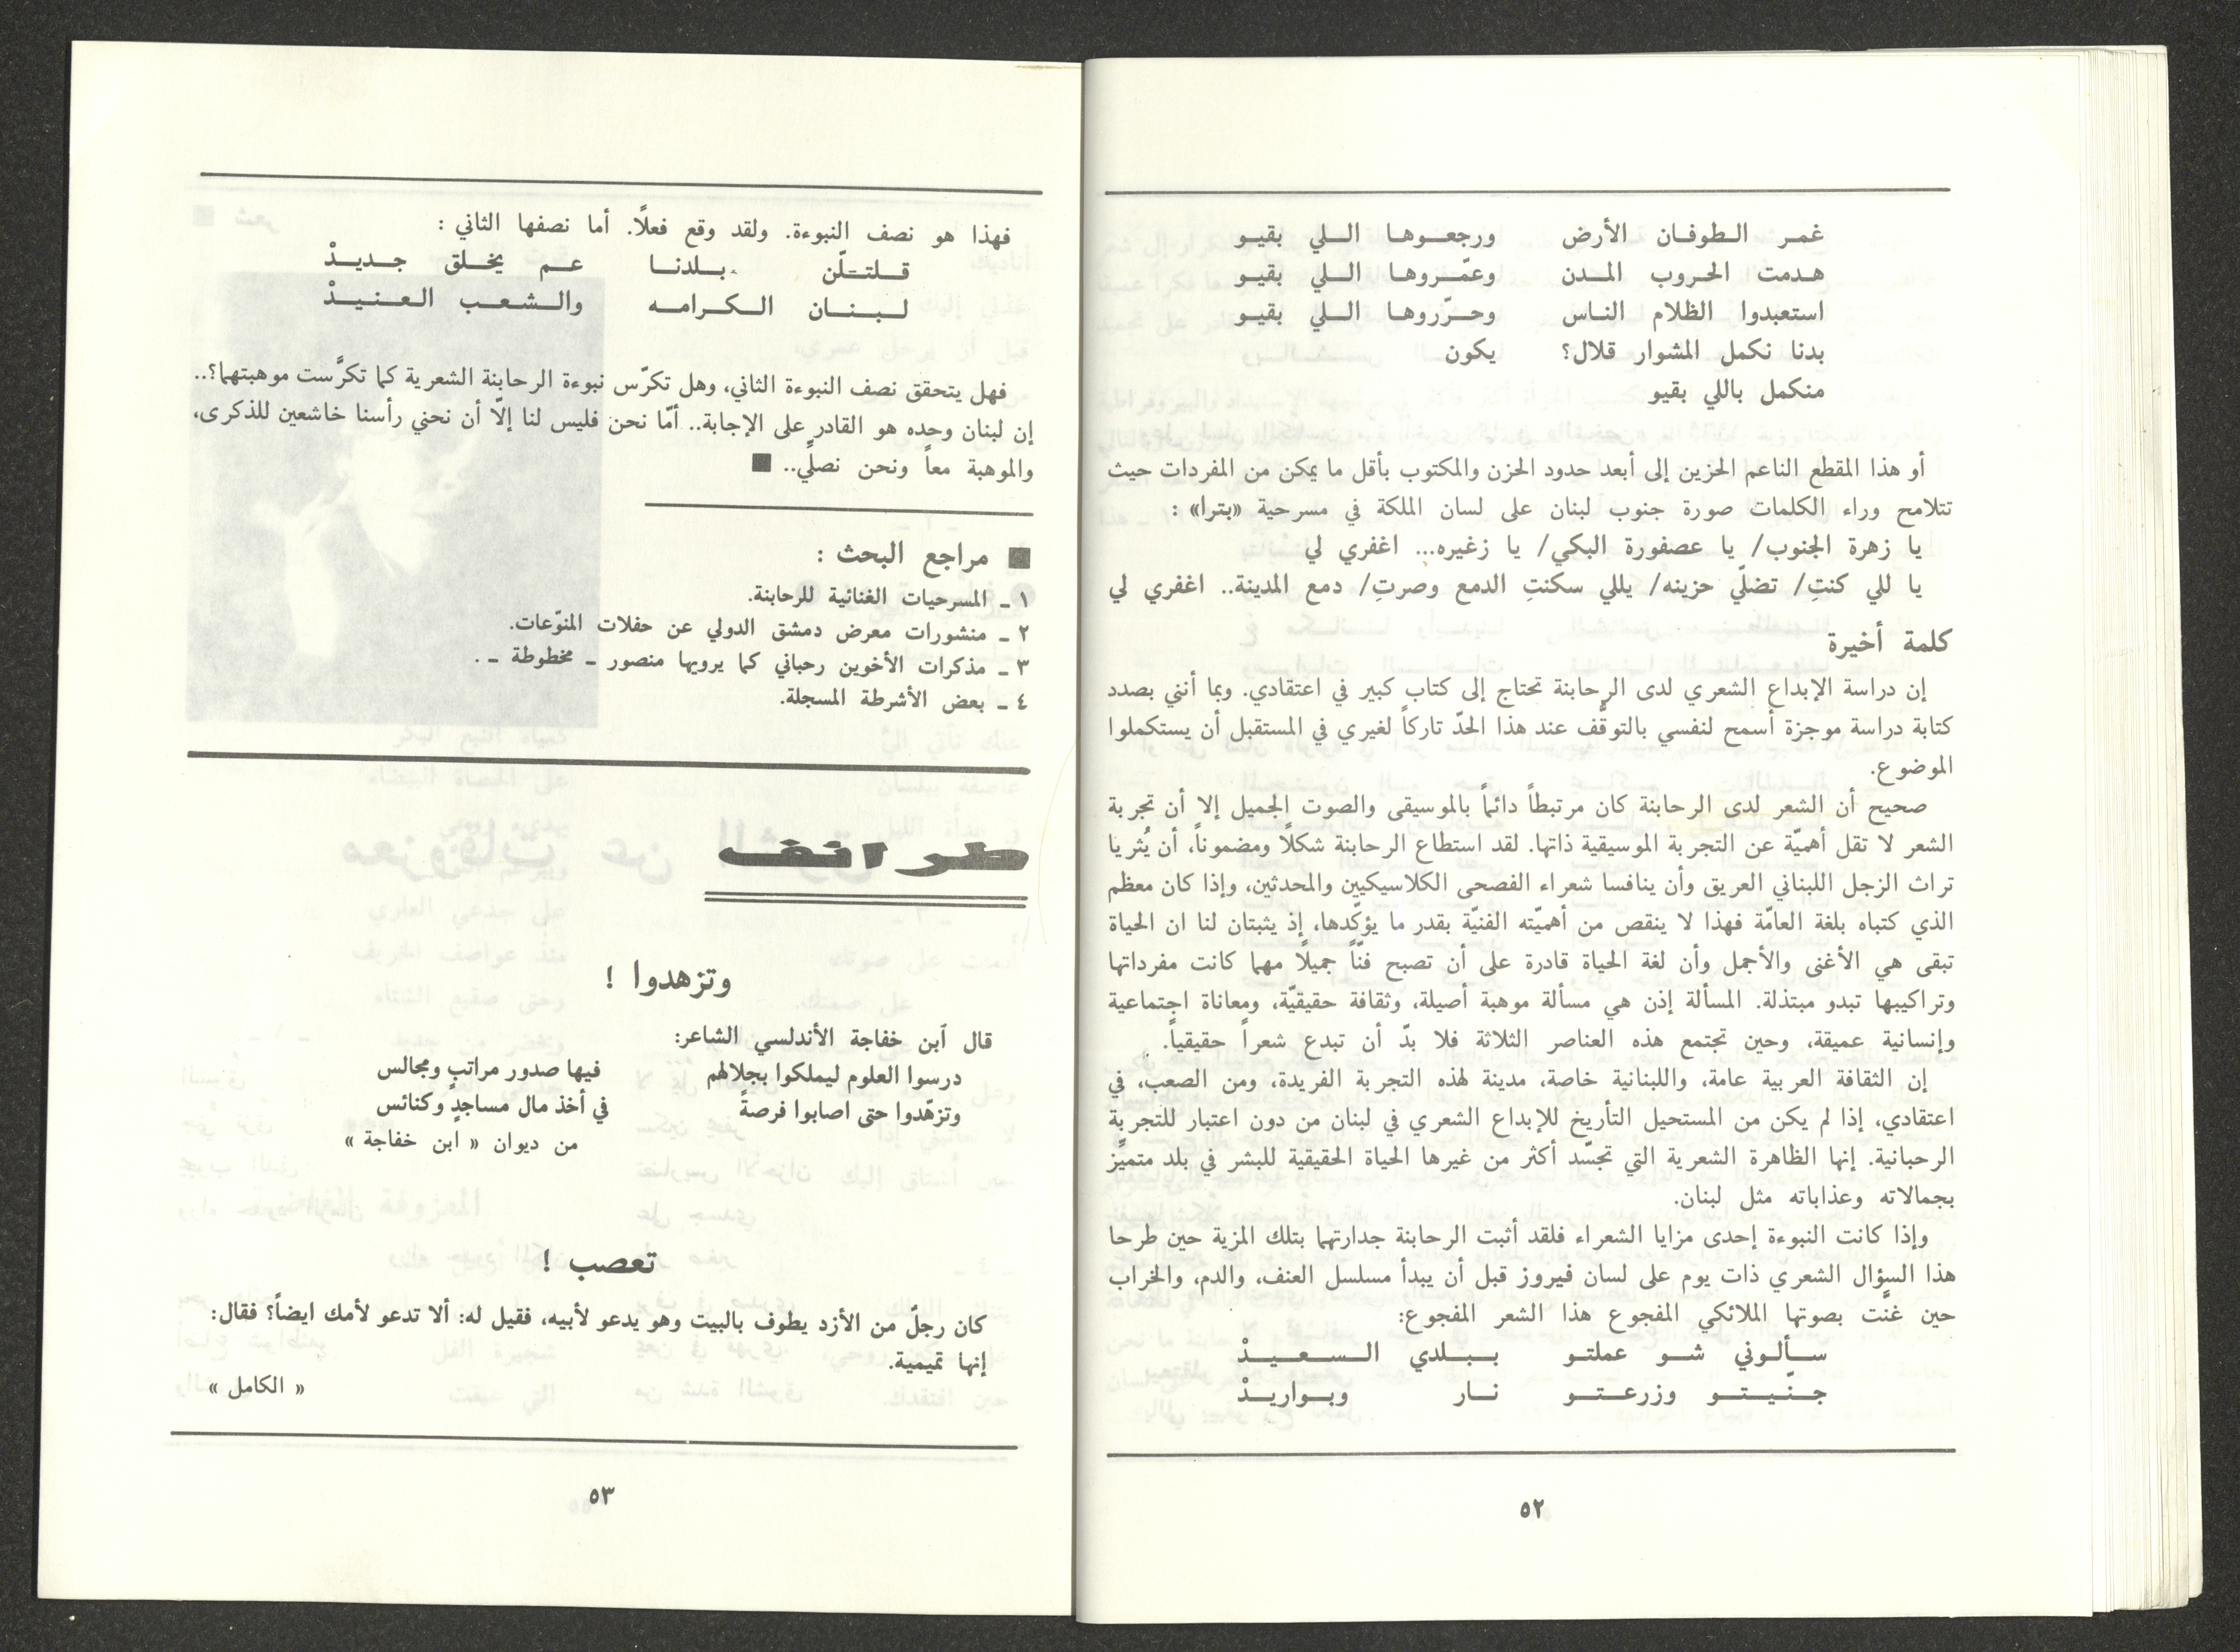 غمر الطوفان الأرض ورجعوها اللي بقيو
هدمت الحروب المدن وعمّروها اللي بقيو
استعبدوا الظلام الناس وحرّروها اللي بقيو
بدنا نكمل المشوار قلال؟ يكون
منكمل باللي بقيو
أو هذا المقطع الناعم الحزين إلى أبعد حدود الحزن والمكتوب بأقل ما يمكن من المفردات حيث
تتلامح وراء الكلمات صورة جنوب لبنان على لسان الملكة في مسرحية «بترا» :
يا زهرة الجنوب/ يا عصفورة البكي/ يا زغيره... اغفري لي
يا للي كنتِ/ تضلّي حزينه/ يللي سكنتِ الدمع وصرتِ/ دمع المدينة.. اغفري لي
كلمة أخيرة
إن دراسة الإبداع الشعري لدى الرحابنة تحتاج إلى كتاب كبير في اعتقادي. وبما أنني بصدد
كتابة دراسة موجزة أسمح لنفسي بالتوقُّف عند هذا الحدّ تاركاً لغيري في المستقبل أن يستكملوا
الموضوع.
صحيح أن الشعر لدى الرحابنة كان مرتبطاً دائماً بالموسيقى والصوت الجميل إلا أن تجربة
الشعر لا تقل أهميّة عن التجربة الموسيقية ذاتها. لقد استطاع الرحابنة شكلًا ومضموناً، أن يُثريا
تراث الزجل اللبناني العريق وأن ينافسا شعراء الفصحى الكلاسيكيين والمحدثين، وإذا كان معظم
الذي كتباه بلغة العامّة فهذا لا ينقص من أهميّته الفنيّة بقدر ما يؤكّدها، إذ يثبتان لنا ان الحياة
تبقى هي الأغنى والأجمل وأن لغة الحياة قادرة على أن تصبح فنّاً جميلًا مهما كانت مفرداتها
وتراكيبها تبدو مبتذلة. المسألة إذن هي مسألة موهبة أصيلة، وثقافة حقيقيّة، ومعاناة اجتماعية
وإنسانية عميقة، وحين تجتمع هذه العناصر الثلاثة فلا بدّ أن تبدع شعراً حقيقياً.
إن الثقافة العربية عامة، واللبنانية خاصة، مدينة لهذه التجربة الفريدة، ومن الصعب، في
اعتقادي، إذا لم يكن من المستحيل التأريخ للإبداع الشعري في لبنان من دون اعتبار للتجربة
الرحبانية. إنها الظاهرة الشعرية التي تجسّد أكثر من غيرها الحياة الحقيقية للبشر في بلد متميّز
بجمالاته وعذاباته مثل لبنان.
وإذا كانت النبوءة إحدى مزايا الشعراء فلقد أثبت الرحابنة جدارتهما بتلك المزية حين طرحا
هذا السؤال الشعري ذات يوم على لسان فيروز قبل أن يبدأ مسلسل العنف، والدم، والخراب
حين غنّت بصوتها الملائكي المفجوع هذا الشعر المفجوع:
سألوني شو عملتو ببلدي السعيدْ
جنّيتو وزرعتو نار وبواريدْ
٥٢
فهذا هو نصف النبوءة. ولقد وقع فعلًا. أما نصفها الثاني :
قلتلّن بلدنا عم يخلق جديدْ
لبنان الكرامه والشعب العنيدْ
فهل يتحقق نصف النبوءة الثاني، وهل تكرّس نبوءة الرحابنة الشعرية كما تكرَّست موهبتهما؟..
إن لبنان وحده هو القادر على الإجابة.. أمّا نحن فليس لنا إلّا أن نحني رأسنا خاشعين للذكرى،
والموهبة معاً ونحن نصلّي.. ■
■ مراجع البحث :
١ ـ المسرحيات الغنائية للرحابنة.
٢ ـ منشورات معرض دمشق الدولي عن حفلات المنوّعات.
٣ ـ مذكرات الأخوين رحباني كما يرويها منصور ـ مخطوطة ـ .
٤ ـ بعض الأشرطة المسجلة.
طرائف
وتزهدوا !
قال ابن خفاجة الأندلسي الشاعر:
درسوا العلوم ليملكوا بجلالهم فيها صدور مراتبٍ ومجالس
وتزهّدوا حتى اصابوا فرصةً في أخذ مال مساجدٍ وكنائس
من ديوان « ابن خفاجة »
تعصب !
كان رجلٌ من الأزد يطوف بالبيت وهو يدعو لأبيه، فقيل له: ألا تدعو لأمك ايضاً؟ فقال:
إنها تميمية.
« الكامل »
٥٣